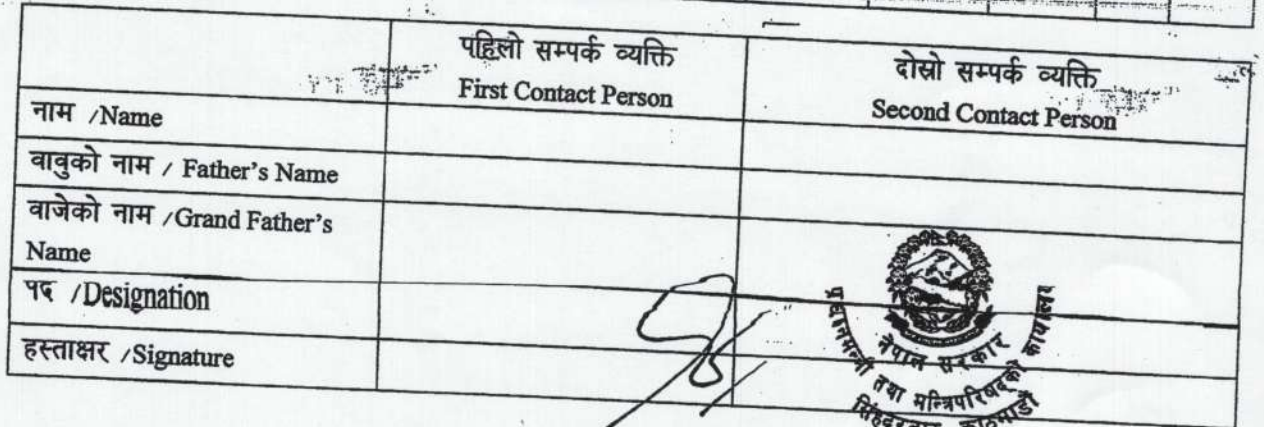 पहिलो सम्पर्क व्यक्ति
First Contact Person
दोस्रो सम्पर्क व्यक्ति
Second Contact Person
नाम /Name
वावुको नाम / Father's Name
वाजेको नाम /Grand Father's
Name
पद /Designation
हस्ताक्षर /Signature
नेपाल सरकार
प्रधानमन्त्री तथा मन्त्रिपरिषद्को कार्यालय
सिंहदरवार, काठमाडौं